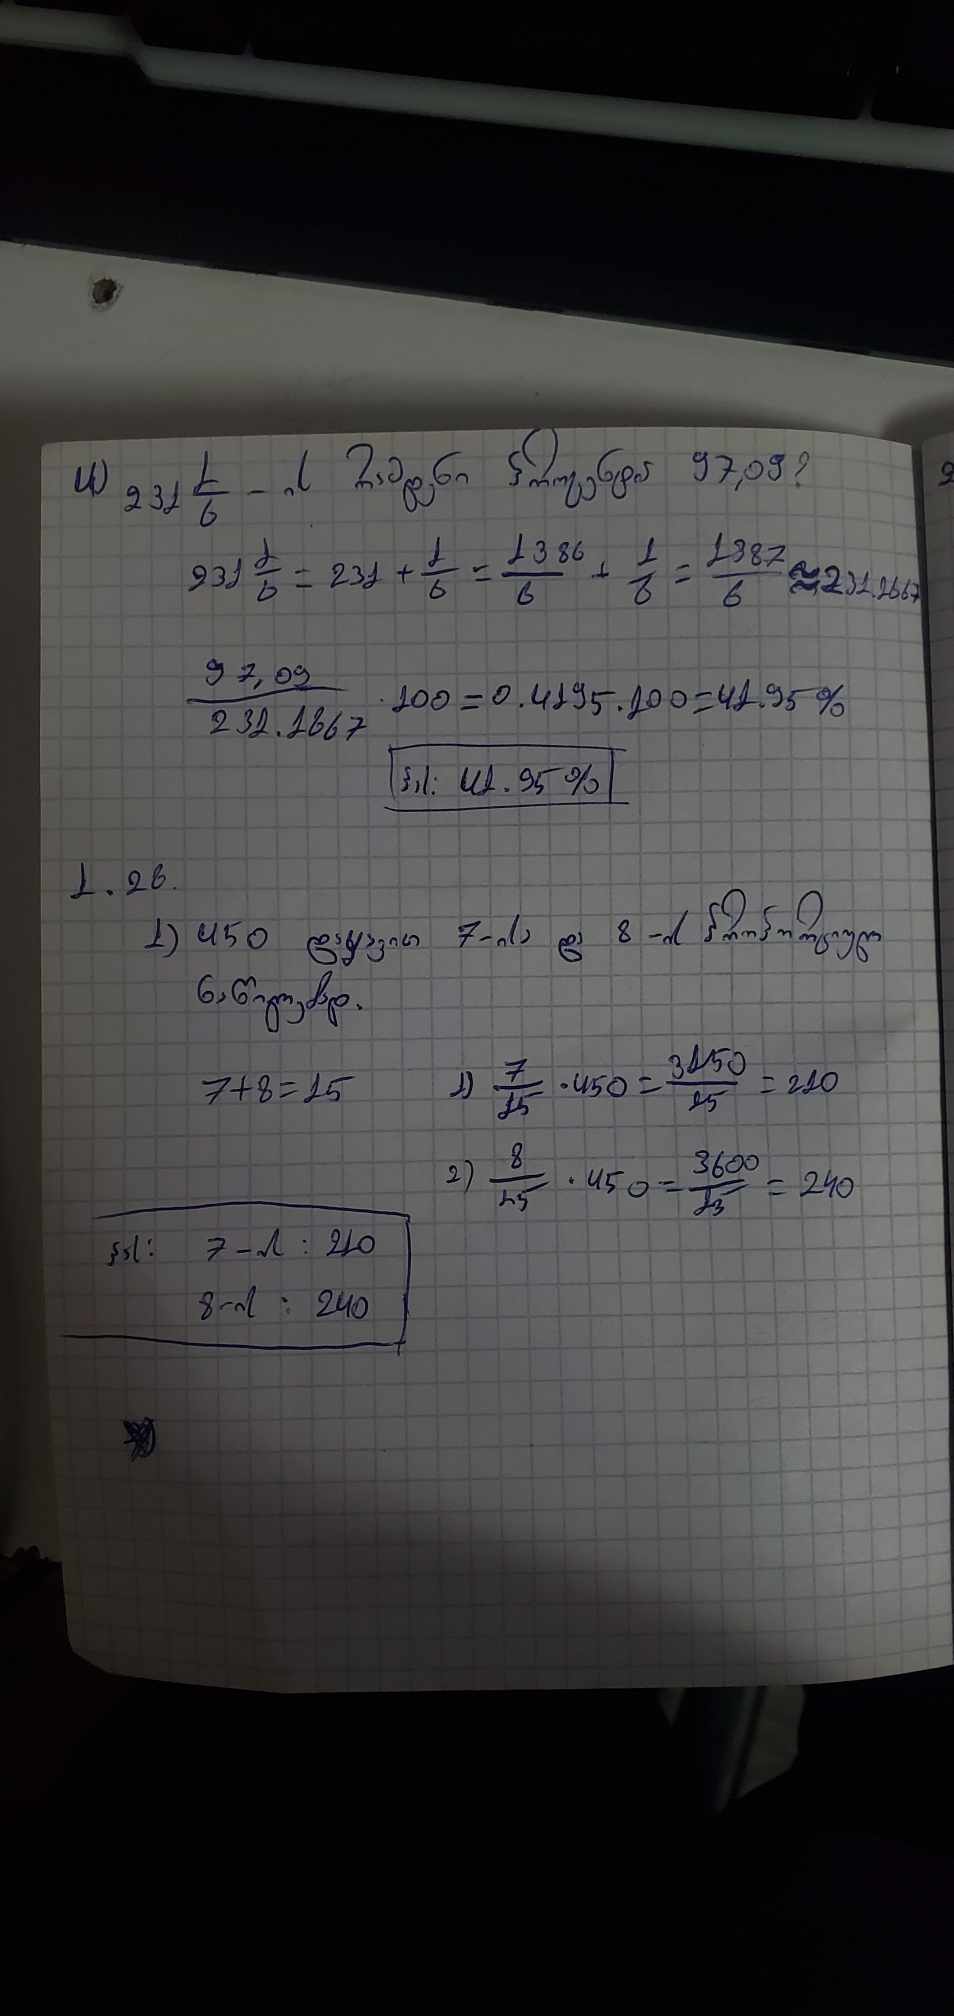 4) 231 1/6 - ის რამდენი პროცენტია 97,09?
231 1/6 = 231 + 1/6 = 1386/6 + 1/6 = 1387/6 ≈ 231.1667
97,09/231.1667 · 100 = 0.4195 · 100 = 41.95 %
პას: 41.95 %
1.26.
1) 450 დაყავით 7-ისა და 8-ის პროპორციულ
ნაწილებად.
7+8=15
1) 7/15 · 450 = 3150/15 = 210
2) 8/15 · 450 = 3600/15 = 240
პას: 7-ის : 210
8-ის : 240